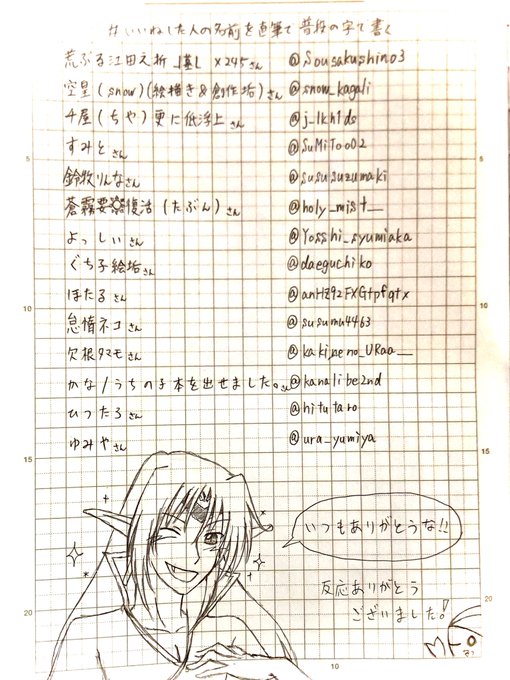 #いいねした人の名前を直筆で普段の字で書く
荒ぶる江田え祈 ×245さん @Sousakushino3
空星(snow)(絵描き&創作垢)さん @snow_kagali
千屋(ちや)更に低浮上さん @j_lkh1ds
すみとさん @SuMiToo02
鈴牧りんなさん @sususuzumaki
蒼霧要 復活(たぶん)さん @holy_mist__
よっしぃさん @Yosshi_syumiaka
ぐち子絵垢さん @daeguchiko
ほたるさん @anHZ9zFXGtpfqtx
怠惰ネコさん @susumu4463
欠根タマモさん @kakikaeno_URaa__
かな/うちの子本を出せました。さん @kanalibe2nd
ひつたろさん @hitutaro
ゆみやさん @ura_yumiya
5
5
10
10
15
15
いつもありがとうな!!
反応ありがとう
ございました!
20
20
10